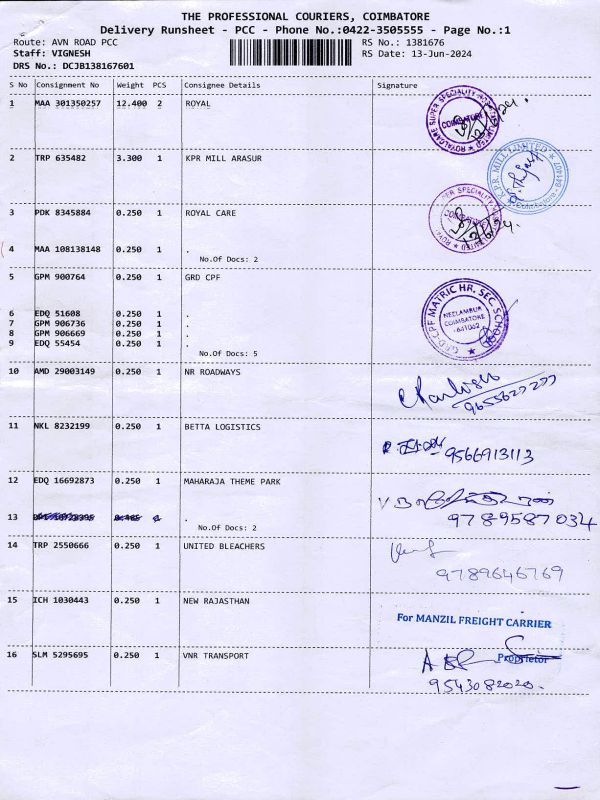 THE PROFESSIONAL COURIERS, COIMBATORE
Delivery Runsheet - PCC - Phone No.:0422-3505555 - Page No.:1
Route: AVN ROAD PCC RS No.: 1381676
Staff: VIGNESH RS Date: 13-Jun-2024
DRS No.: DCJB138167601
S No Consignment No Weight PCS Consignee Details Signature
1 MAA 301350257 12.400 2 ROYAL
COIMBATORE
2 TRP 635482 3.300 1 KPR MILL ARASUR
K.P.R. MILL LIMITED
3 PDK 8345884 0.250 1 ROYAL CARE
4 MAA 108138148 0.250 1 .
No.Of Docs: 2
5 GPM 900764 0.250 1 GRD CPF
MATRIC HR. SEC. SCHOOL
NEELAMBUR
COIMBATORE
6 EDQ 51608 0.250 1 .
7 GPM 906736 0.250 1 .
8 GPM 906669 0.250 1 .
9 EDQ 55454 0.250 1 .
No.Of Docs: 5
10 AMD 29003149 0.250 1 NR ROADWAYS
11 NKL 8232199 0.250 1 BETTA LOGISTICS
9566913113
12 EDQ 16692873 0.250 1 MAHARAJA THEME PARK
13 .
No.Of Docs: 2
9789587034
14 TRP 2550666 0.250 1 UNITED BLEACHERS
9789646769
15 ICH 1030443 0.250 1 NEW RAJASTHAN
For MANZIL FREIGHT CARRIER
Proprietor
16 SLM 5295695 0.250 1 VNR TRANSPORT
9543082020.